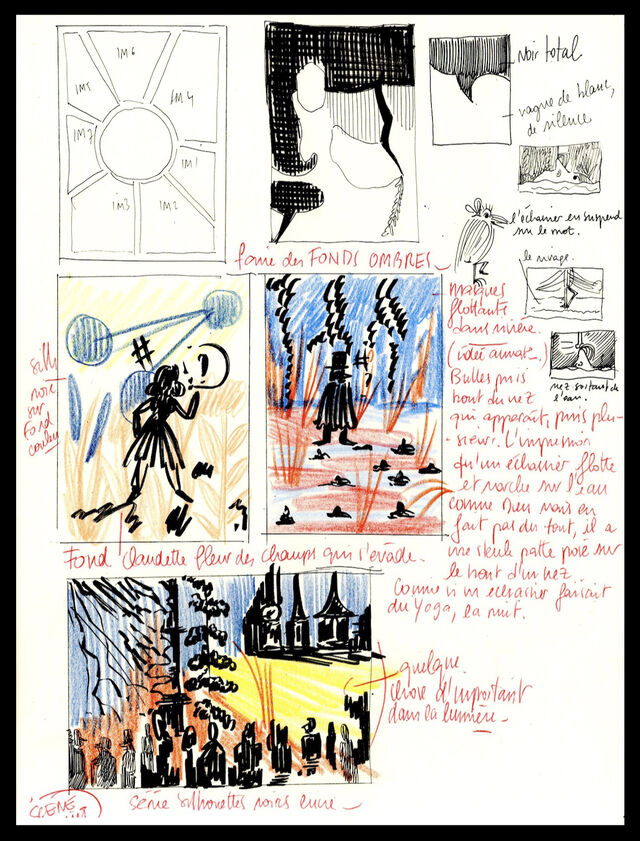 IM6
IM5
IM4
IM7
IM1
IM3
IM2
Noir total
vague de blanc,
de silence
l'échassier en suspend
sur le mot.
le rivage.
nez sortant de
l'eau.
faire des FONDS OMBRES
masques
flottants
dans rivière.
(idée aimate.)
Bulles puis
bout du nez
qui apparaît, puis plu-
sieurs. L'impression
qu'un échassier flotte
et marche sur l'eau
comme rien mais en
fait pas du tout, il a
une seule patte posée sur
le bout d'un nez.
Comme si un échassier faisait
du Yoga, la nuit.
silh
noire
sur
Fond
couleur
Fond Claudette fleur des champs qui s'évade.
quelque
chose d'important
dans la lumière
SCENE
série silhouettes noires encre